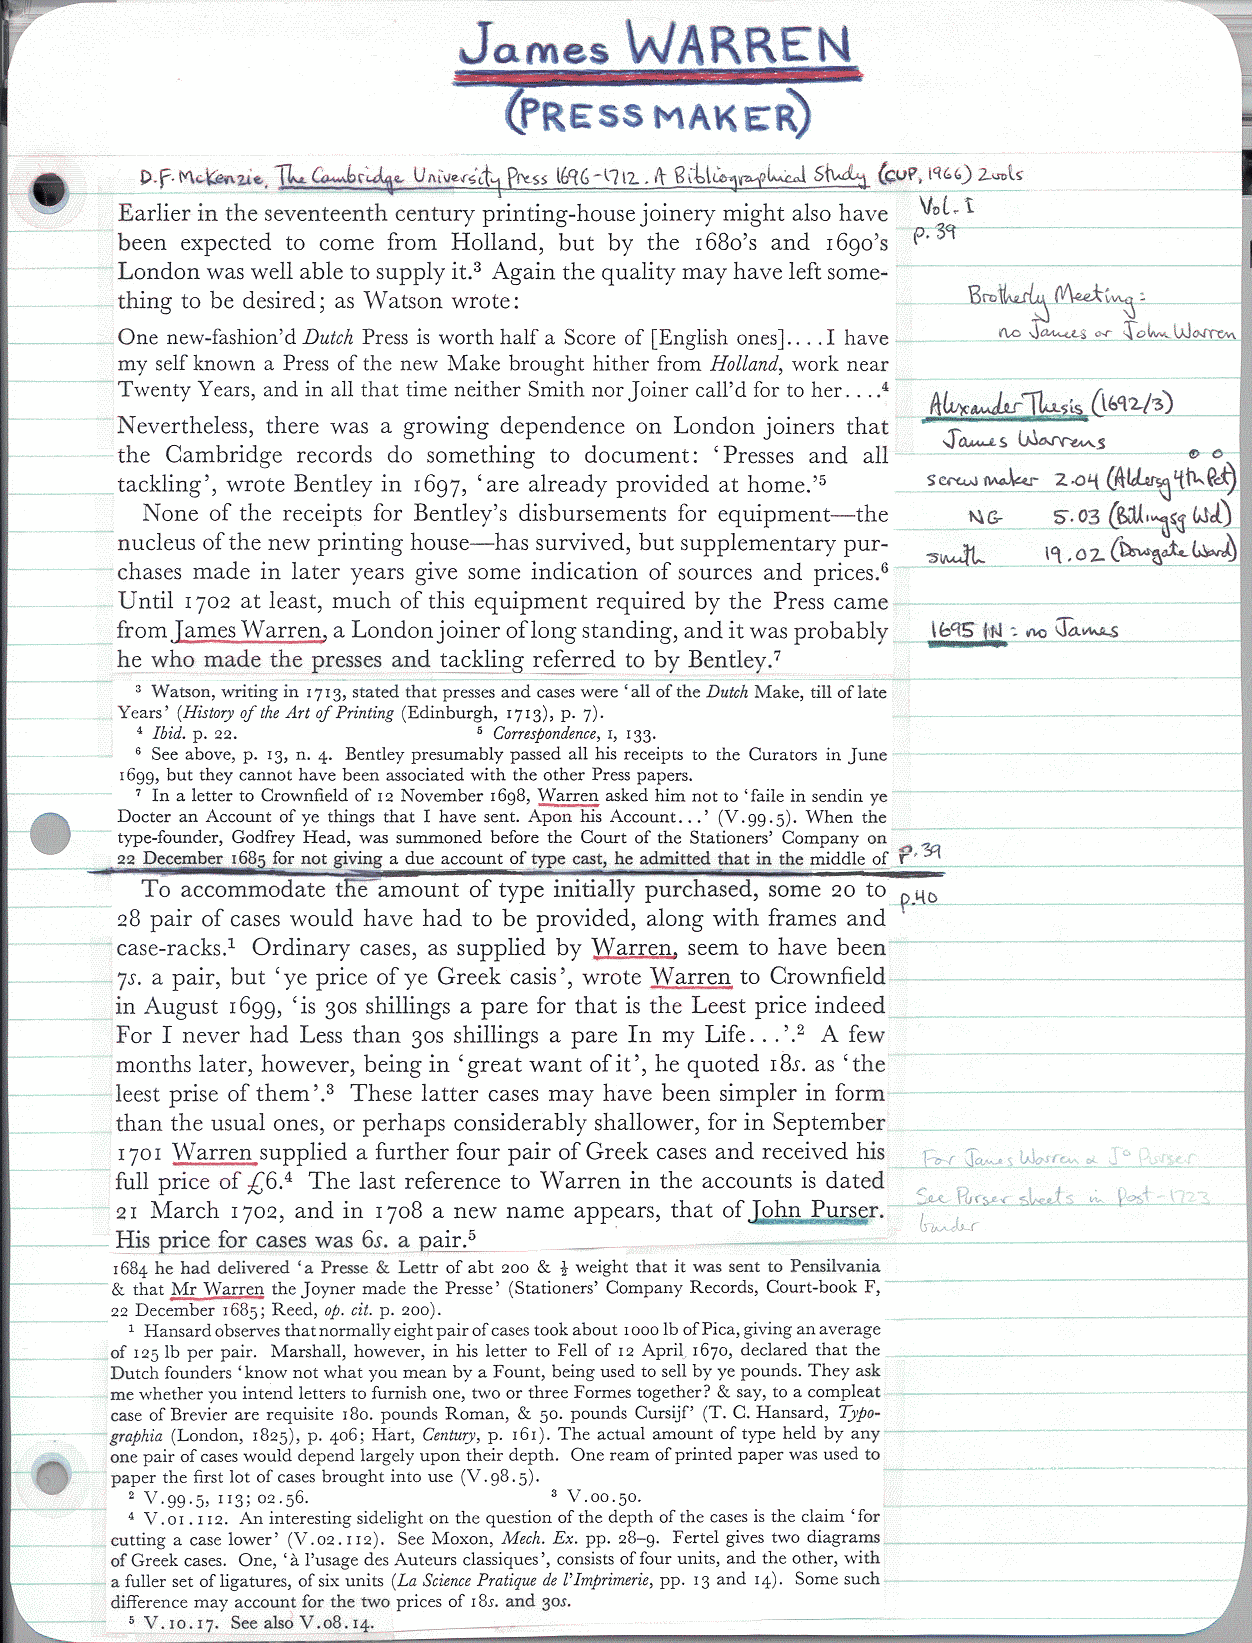 James WARREN
(PRESS MAKER)
D.F. McKenzie, The Cambridge University Press 1696–1712. A Bibliographical Study (CUP, 1966) 2 vols
Earlier in the seventeenth century printing-house joinery might also have
been expected to come from Holland, but by the 1680's and 1690's
London was well able to supply it.³ Again the quality may have left some-
thing to be desired; as Watson wrote:
One new-fashion'd Dutch Press is worth half a Score of [English ones]....I have
my self known a Press of the new Make brought hither from Holland, work near
Twenty Years, and in all that time neither Smith nor Joiner call'd for to her....⁴
Nevertheless, there was a growing dependence on London joiners that
the Cambridge records do something to document: 'Presses and all
tackling', wrote Bentley in 1697, 'are already provided at home.'⁵
None of the receipts for Bentley's disbursements for equipment—the
nucleus of the new printing house—has survived, but supplementary pur-
chases made in later years give some indication of sources and prices.⁶
Until 1702 at least, much of this equipment required by the Press came
from James Warren, a London joiner of long standing, and it was probably
he who made the presses and tackling referred to by Bentley.⁷
³ Watson, writing in 1713, stated that presses and cases were 'all of the Dutch Make, till of late
Years' (History of the Art of Printing (Edinburgh, 1713), p. 7).
⁴ Ibid. p. 22. ⁵ Correspondence, I, 133.
⁶ See above, p. 13, n. 4. Bentley presumably passed all his receipts to the Curators in June
1699, but they cannot have been associated with the other Press papers.
⁷ In a letter to Crownfield of 12 November 1698, Warren asked him not to 'faile in sendin ye
Docter an Account of ye things that I have sent. Apon his Account...' (V.99.5). When the
type-founder, Godfrey Head, was summoned before the Court of the Stationers' Company on
22 December 1685 for not giving a due account of type cast, he admitted that in the middle of
To accommodate the amount of type initially purchased, some 20 to
28 pair of cases would have had to be provided, along with frames and
case-racks.¹ Ordinary cases, as supplied by Warren, seem to have been
7s. a pair, but 'ye price of ye Greek casis', wrote Warren to Crownfield
in August 1699, 'is 30s shillings a pare for that is the Leest price indeed
For I never had Less than 30s shillings a pare In my Life...'.² A few
months later, however, being in 'great want of it', he quoted 18s. as 'the
leest prise of them'.³ These latter cases may have been simpler in form
than the usual ones, or perhaps considerably shallower, for in September
1701 Warren supplied a further four pair of Greek cases and received his
full price of £6.⁴ The last reference to Warren in the accounts is dated
21 March 1702, and in 1708 a new name appears, that of John Purser.
His price for cases was 6s. a pair.⁵
1684 he had delivered 'a Presse & Lettr of abt 200 & ½ weight that it was sent to Pensilvania
& that Mr Warren the Joyner made the Presse' (Stationers' Company Records, Court-book F,
22 December 1685; Reed, op. cit. p. 200).
¹ Hansard observes that normally eight pair of cases took about 1000 lb of Pica, giving an average
of 125 lb per pair. Marshall, however, in his letter to Fell of 12 April 1670, declared that the
Dutch founders 'know not what you mean by a Fount, being used to sell by ye pounds. They ask
me whether you intend letters to furnish one, two or three Formes together? & say, to a compleat
case of Brevier are requisite 180. pounds Roman, & 50. pounds Cursijf' (T. C. Hansard, Typo-
graphia (London, 1825), p. 406; Hart, Century, p. 161). The actual amount of type held by any
one pair of cases would depend largely upon their depth. One ream of printed paper was used to
paper the first lot of cases brought into use (V.98.5).
² V.99.5, 113; 02.56. ³ V.00.50.
⁴ V.01.112. An interesting sidelight on the question of the depth of the cases is the claim 'for
cutting a case lower' (V.02.112). See Moxon, Mech. Ex. pp. 28–9. Fertel gives two diagrams
of Greek cases. One, 'à l'usage des Auteurs classiques', consists of four units, and the other, with
a fuller set of ligatures, of six units (La Science Pratique de l'Imprimerie, pp. 13 and 14). Some such
difference may account for the two prices of 18s. and 30s.
⁵ V.10.17. See also V.08.14.
Vol. I
p. 39
Brotherly Meeting:
no James or John Warren
Alexander Thesis (1692/3)
James Warrens
screw maker 2.04 (Aldersg 4th Pct)
NG 5.03 (Billingsg Wd)
smith 19.02 (Dowgate Ward)
1695 IN: no James
P. 39
p. 40
For James Warren & Jº Purser
See Purser sheets in Post-1723
binder